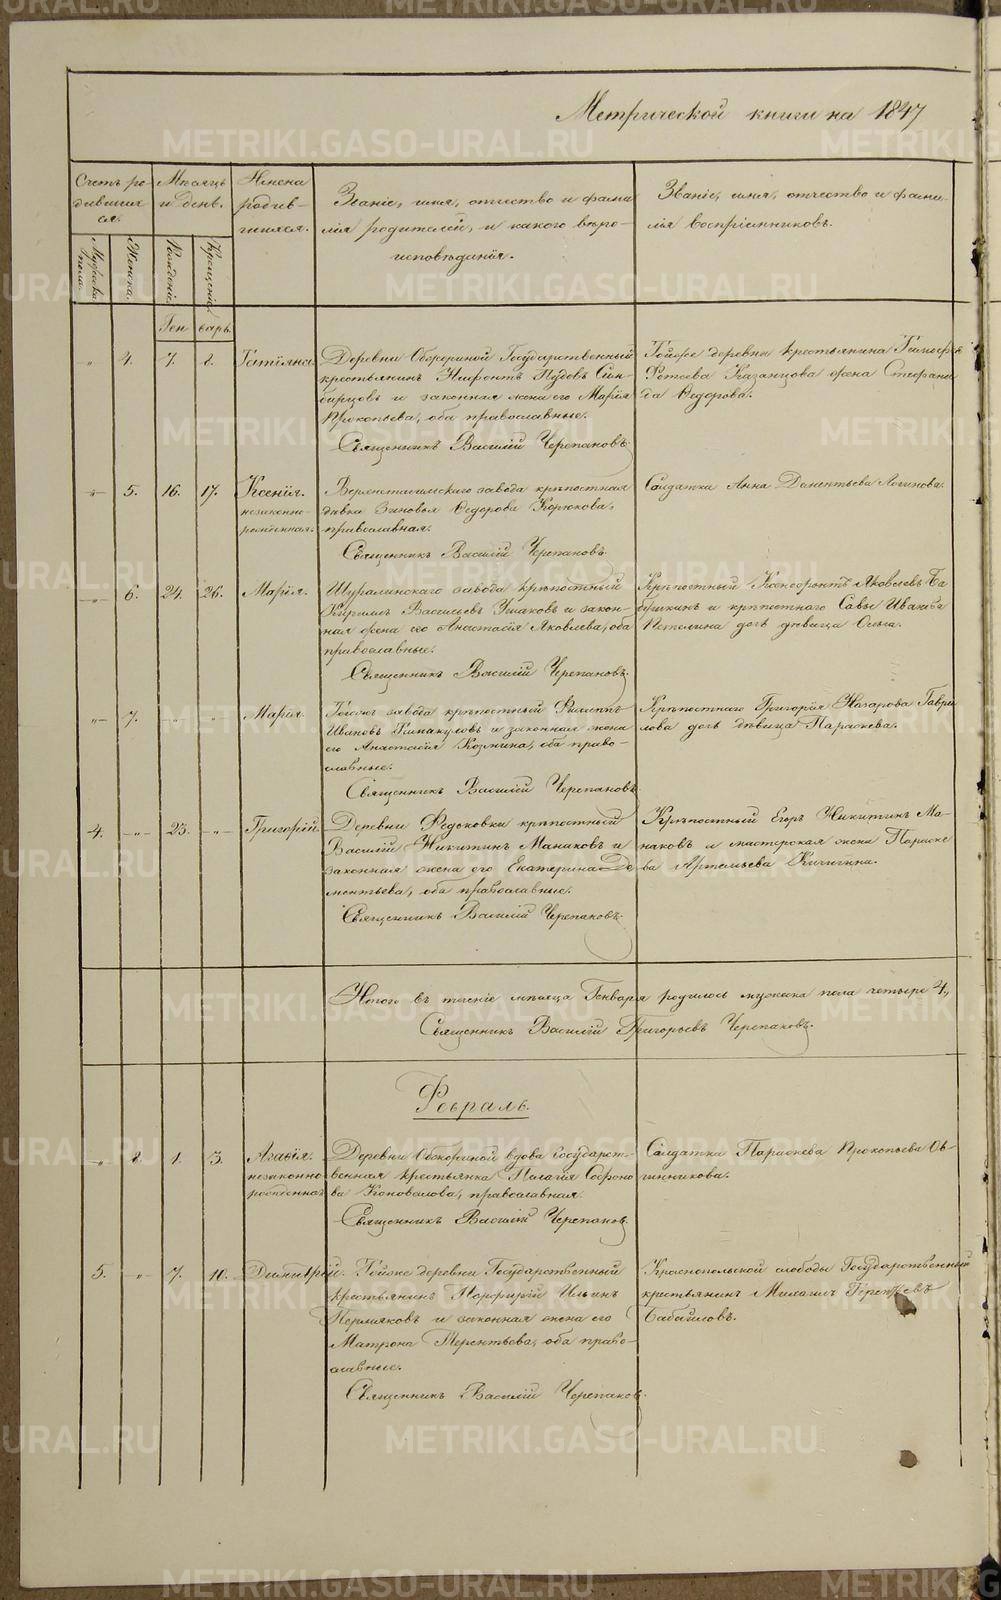 Метрической книги на 1847
Счетъ ро-
дивших-
ся.
Мѣсяцъ
и день.
Имена
родив-
шихся.
Званіе, имя, отчество и фами
лія родителей, и какого вѣро-
исповѣданія.
Званіе, имя, отчество и фами-
лія воспріемниковъ.
Мужеска
пола.
Женска.
Рожденія.
Крещенія.
Ген
варь.
" 4. 7. 8. Татіяна.
Деревни Обжориной Государственный
крестьянинъ Нифонтъ Пудовъ Син-
бирцовъ и законная жена его Марія
Прокопьева, оба православные.
Священникъ Василій Черепановъ.
Тойже деревни крестьянина Тимофея
Фотеева Казанцова жена Стефани
да Федорова.
" 5. 16. 17. Ксенія.
незаконно-
рожденная.
завода крѣпостная
дѣвка Зиновья Федорова Корюкова,
православная.
Священникъ Василій Черепановъ.
Солдатка Анна Дементьева Логинова.
" 6. 24. 26. Марія.
Шуралинскаго завода крѣпостный
Кирилъ Васильевъ Ушаковъ и закон-
ная жена его Анастасія Яковлева, оба
православные.
Священникъ Василій Черепановъ.
Крѣпостный Ксенофонтъ Яковлевъ Ба
бушкинъ и крѣпостнаго Савы Иванова
Петелина дочь дѣвица Ольга.
" 7. " " Марія.
Тогожъ завода крѣпостный Филиппъ
Ивановъ и законная жена
его Анастасія Козмина, оба право-
славные.
Священникъ Василій Черепановъ
Крѣпостнаго Григорія Назарова Гаври
лова дочь дѣвица Параскева.
4. " 23. " Григорій.
Деревни Федьковки крѣпостный
Василій Никитинъ Манаковъ и
законная жена его Екатерина Де
ментьева, оба православные.
Священникъ Василій Черепановъ.
Крѣпостный Егоръ Никитинъ Ма-
наковъ и мастерская жена Параске
ва Артемьева Кичигина.
Итого въ теченіе мѣсяца Генваря родилось мужеска пола четыре 4,,
Священникъ Василій Григорьевъ Черепановъ.
Февраль.
" 8. 1. 3. Агафія.
незаконно
рожденная
Деревни Обжориной вдова Государст-
венная крестьянка Палагія Софроно
ва Коновалова, православная.
Священникъ Василій Черепановъ.
Солдатка Параскева Прокопьева Ов-
чинникова.
5. " 7. 10. Димитрій.
Тойже деревни Государственный
крестьянинъ Порфирій Ильинъ
Пермяковъ и законная жена его
Матрона Терентьева, оба право-
славные.
Священникъ Василій Черепановъ.
Краснопольской слободы Государственный
крестьянинъ
Бабайловъ.
METRIKI.GASO-URAL.RU